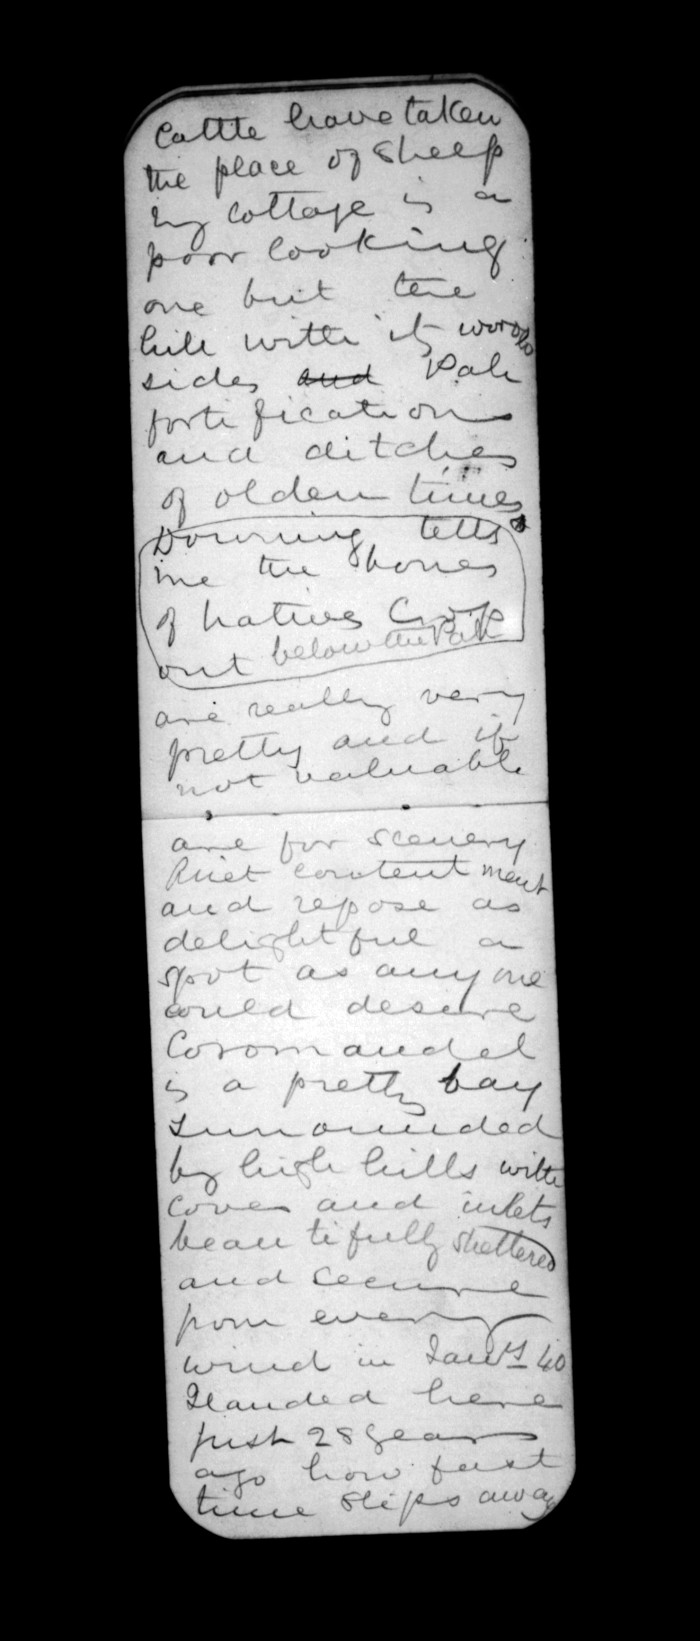 Cattle have taken
the place of sheep
my cottage is a
poor looking
one but the
hill with its woody
sides and Pah
fortifications
and ditches
of olden times
Downing tells
me the bones
of natives Crop
out below the Pah
are really very
pretty and if
not valuable
are for scenery
Quiet contentment
and repose as
delightful a
spot as anyone
could desire
Coromandel
is a pretty bay
surrounded
by high hills with
coves and inlets
beautifully sheltered
and secure
from every
wind in 40
I landed here
just 28 years
ago how fast
time slips away